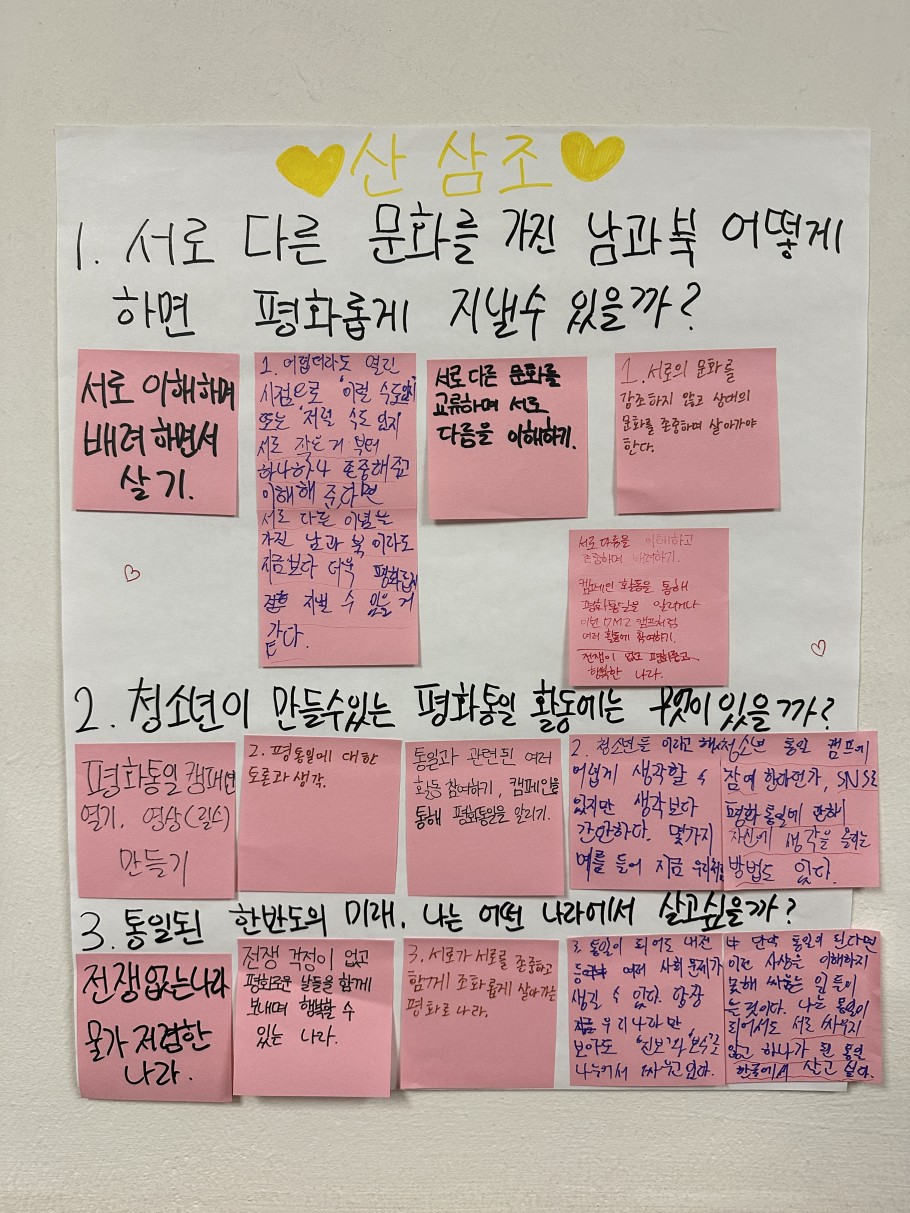 산 삼 조
1. 서로 다른 문화를 가진 남과 북 어떻게
하면 평화롭게 지낼수 있을까?
서로 이해하며
배려하면서
살기.
1. 어렵더라도 열린
시점으로 '이럴 수도 있지'
또는 '저럴 수도 있지'
서로 작은거 부터
하나하나 존중해주고
이해해 준다면
서로 다른 이념을
가진 남과 북 이라도
지금보다 더욱 평화롭게
지낼 수 있을 거
같다.
서로 다른 문화를
교류하며 서로
다름을 이해하기.
1. 서로의 문화를
강조하지 않고 상대의
문화를 존중하며 살아가야
한다.
서로 다름을 이해하고
존중하며 배려하기.
캠페인 활동을 통해
평화통일을 알리거나
이번 DMZ 캠프처럼
여러 활동에 참여하기.
전쟁이 없고 평화롭고
행복한 나라.
2. 청소년이 만들수있는 평화통일 활동에는 무엇이있을까?
평화통일 캠페인
열기. 영상(릴스)
만들기
2. 평통일에 대한
토론과 생각.
통일과 관련된 여러
활동 참여하기, 캠페인을
통해 평화통일을 알리기.
2. 청소년들 이라고 해서
어렵게 생각할 수
있지만 생각보다
간단하다. 몇가지
예를 들어 지금 우리처럼
청소년 통일 캠프에
참여 한다던가, SNS로
평화통일에 관해
자신에 생각을 올리는
방법도 있다.
3. 통일된 한반도의 미래, 나는 어떤 나라에서 살고싶을까?
전쟁없는나라
물가 저렴한
나라.
전쟁 걱정이 없고
평화로운 날들을 함께
보내며 행복할 수
있는 나라.
3. 서로가 서로를 존중하고
함께 조화롭게 살아가는
평화로 나라.
3. 통일이 되어도 내전
등 여러 사회 문제가
생길 수 있다. 당장
지금 우리나라만
보아도 '진보'와 '보수'로
나누어서 싸우고 있다.
만약 통일이 된다면
이런 사상을 이해하지
못해 싸우는 일 들이
는것이다. 나는 통일이
되어서도 서로 싸우지
않고 하나가 된 통일
한국에서 살고 싶다.